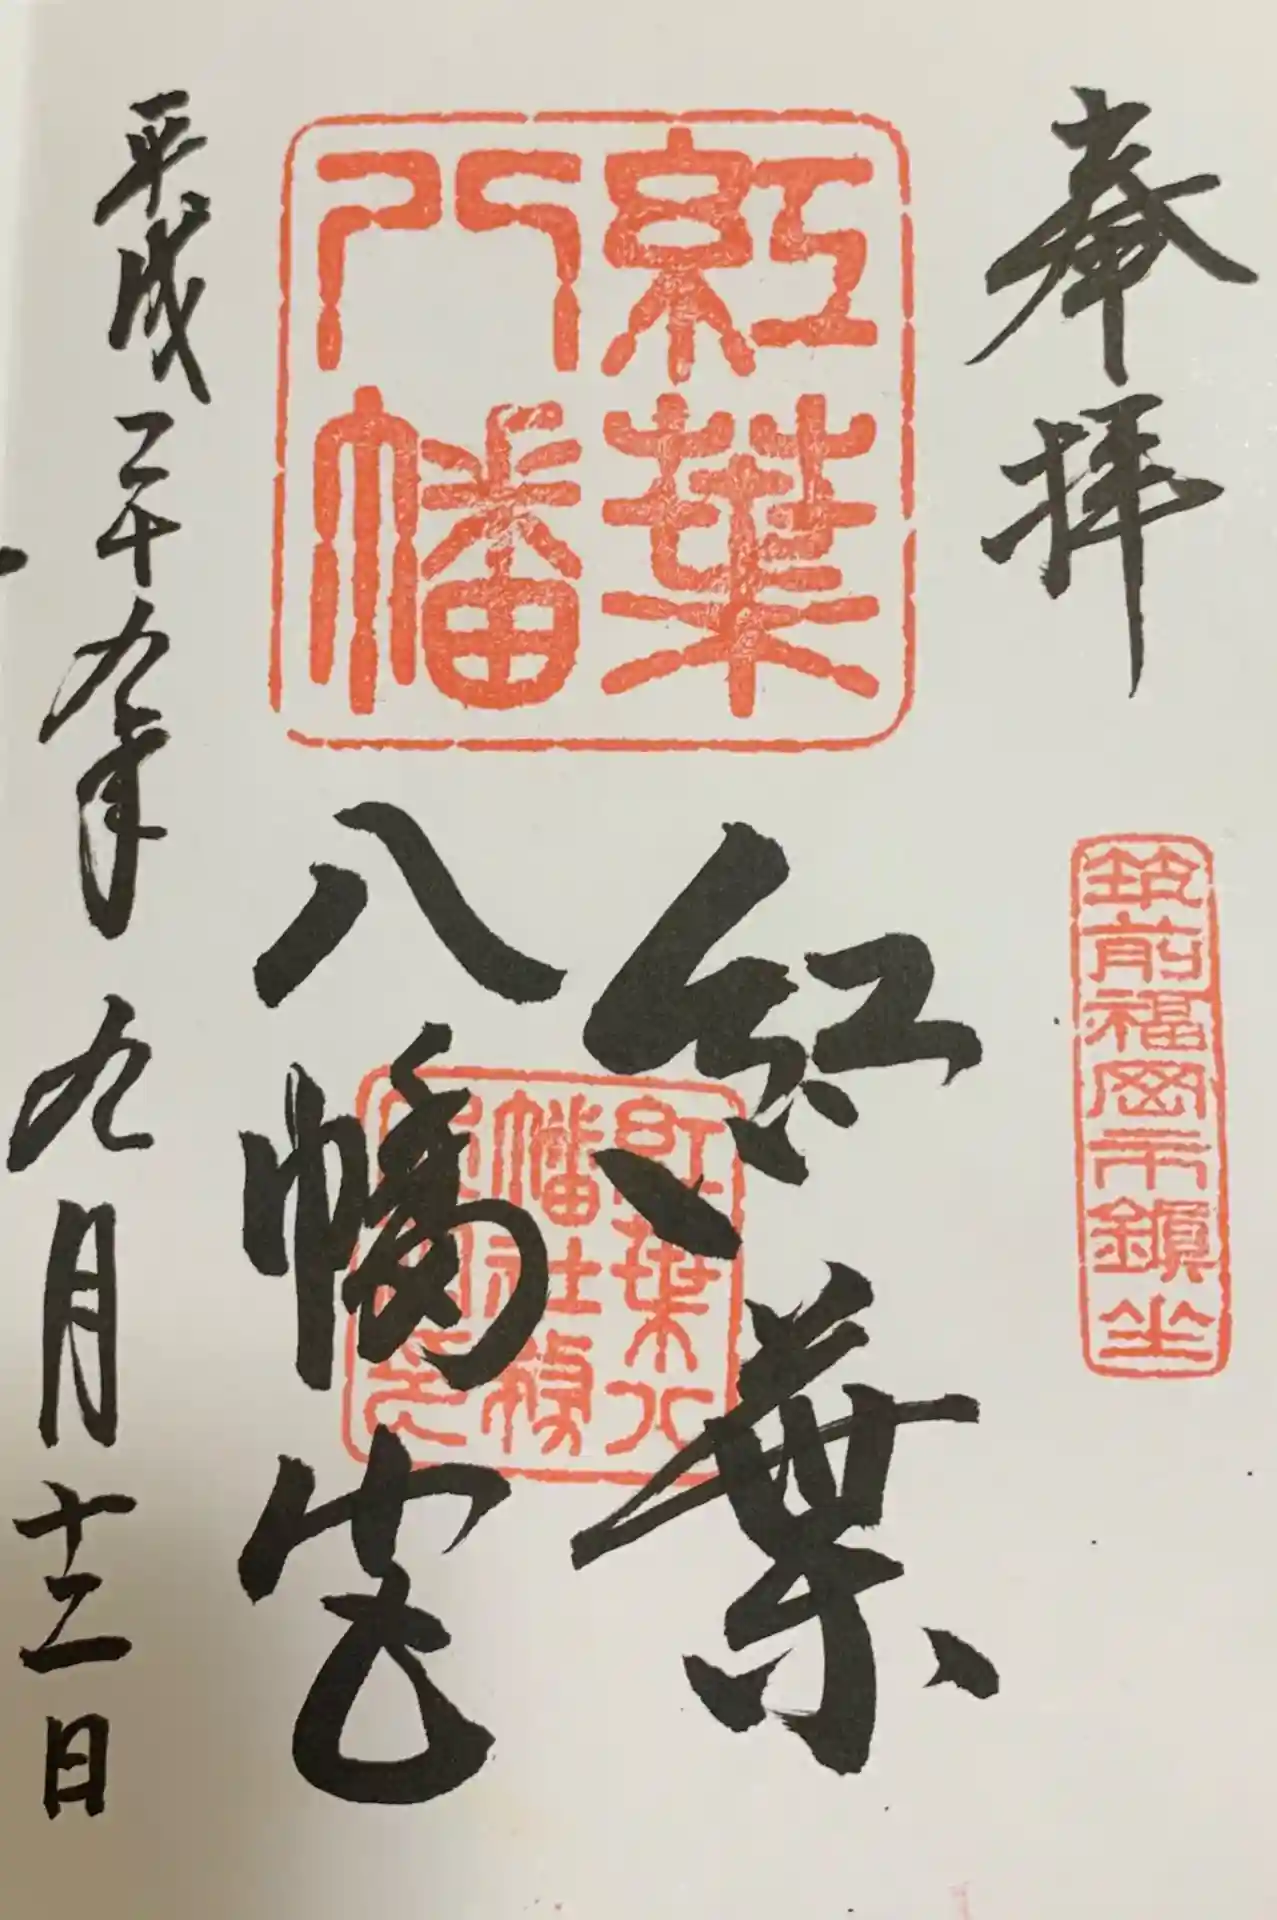 奉拝
筑前福岡市鎮坐
紅葉
八幡
紅葉
八幡宮
紅葉八
幡社務
平成二十九年九月十二日